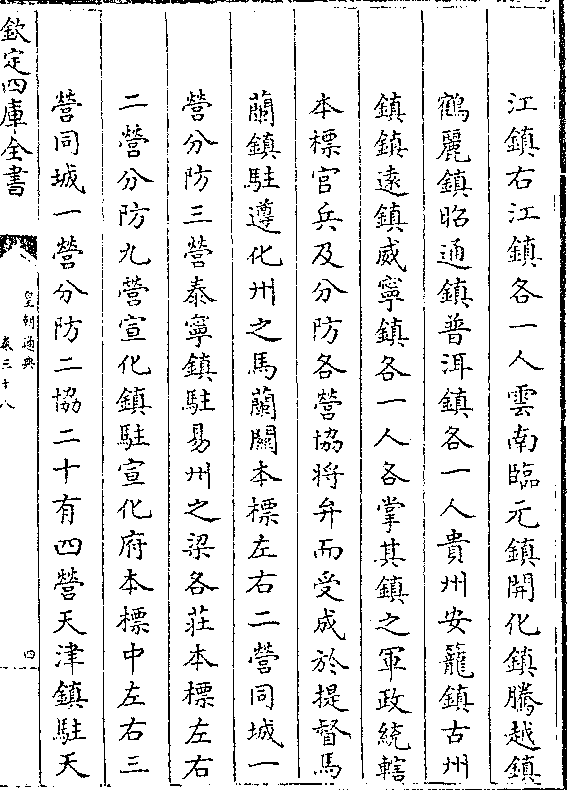 江鎮右江鎮各一人雲南臨元鎮開化鎮騰越鎮
鶴麗鎮昭通鎮普洱鎮各一人貴州安籠鎮古州
鎮鎮遠鎮威寧鎮各一人各掌其鎮之軍政統轄
本標官兵及分防各營協將弁而受成於提督馬
蘭鎮駐遵化州之馬蘭關本標左右二營同城一
營分防三營泰寧鎮駐易州之梁各莊本標左右
二營分防九營宣化鎮駐宣化府本標中左右三
營同城一營分防二協二十有四營天津鎮駐天
欽定四庫全書
皇朝通典
卷三十八
四